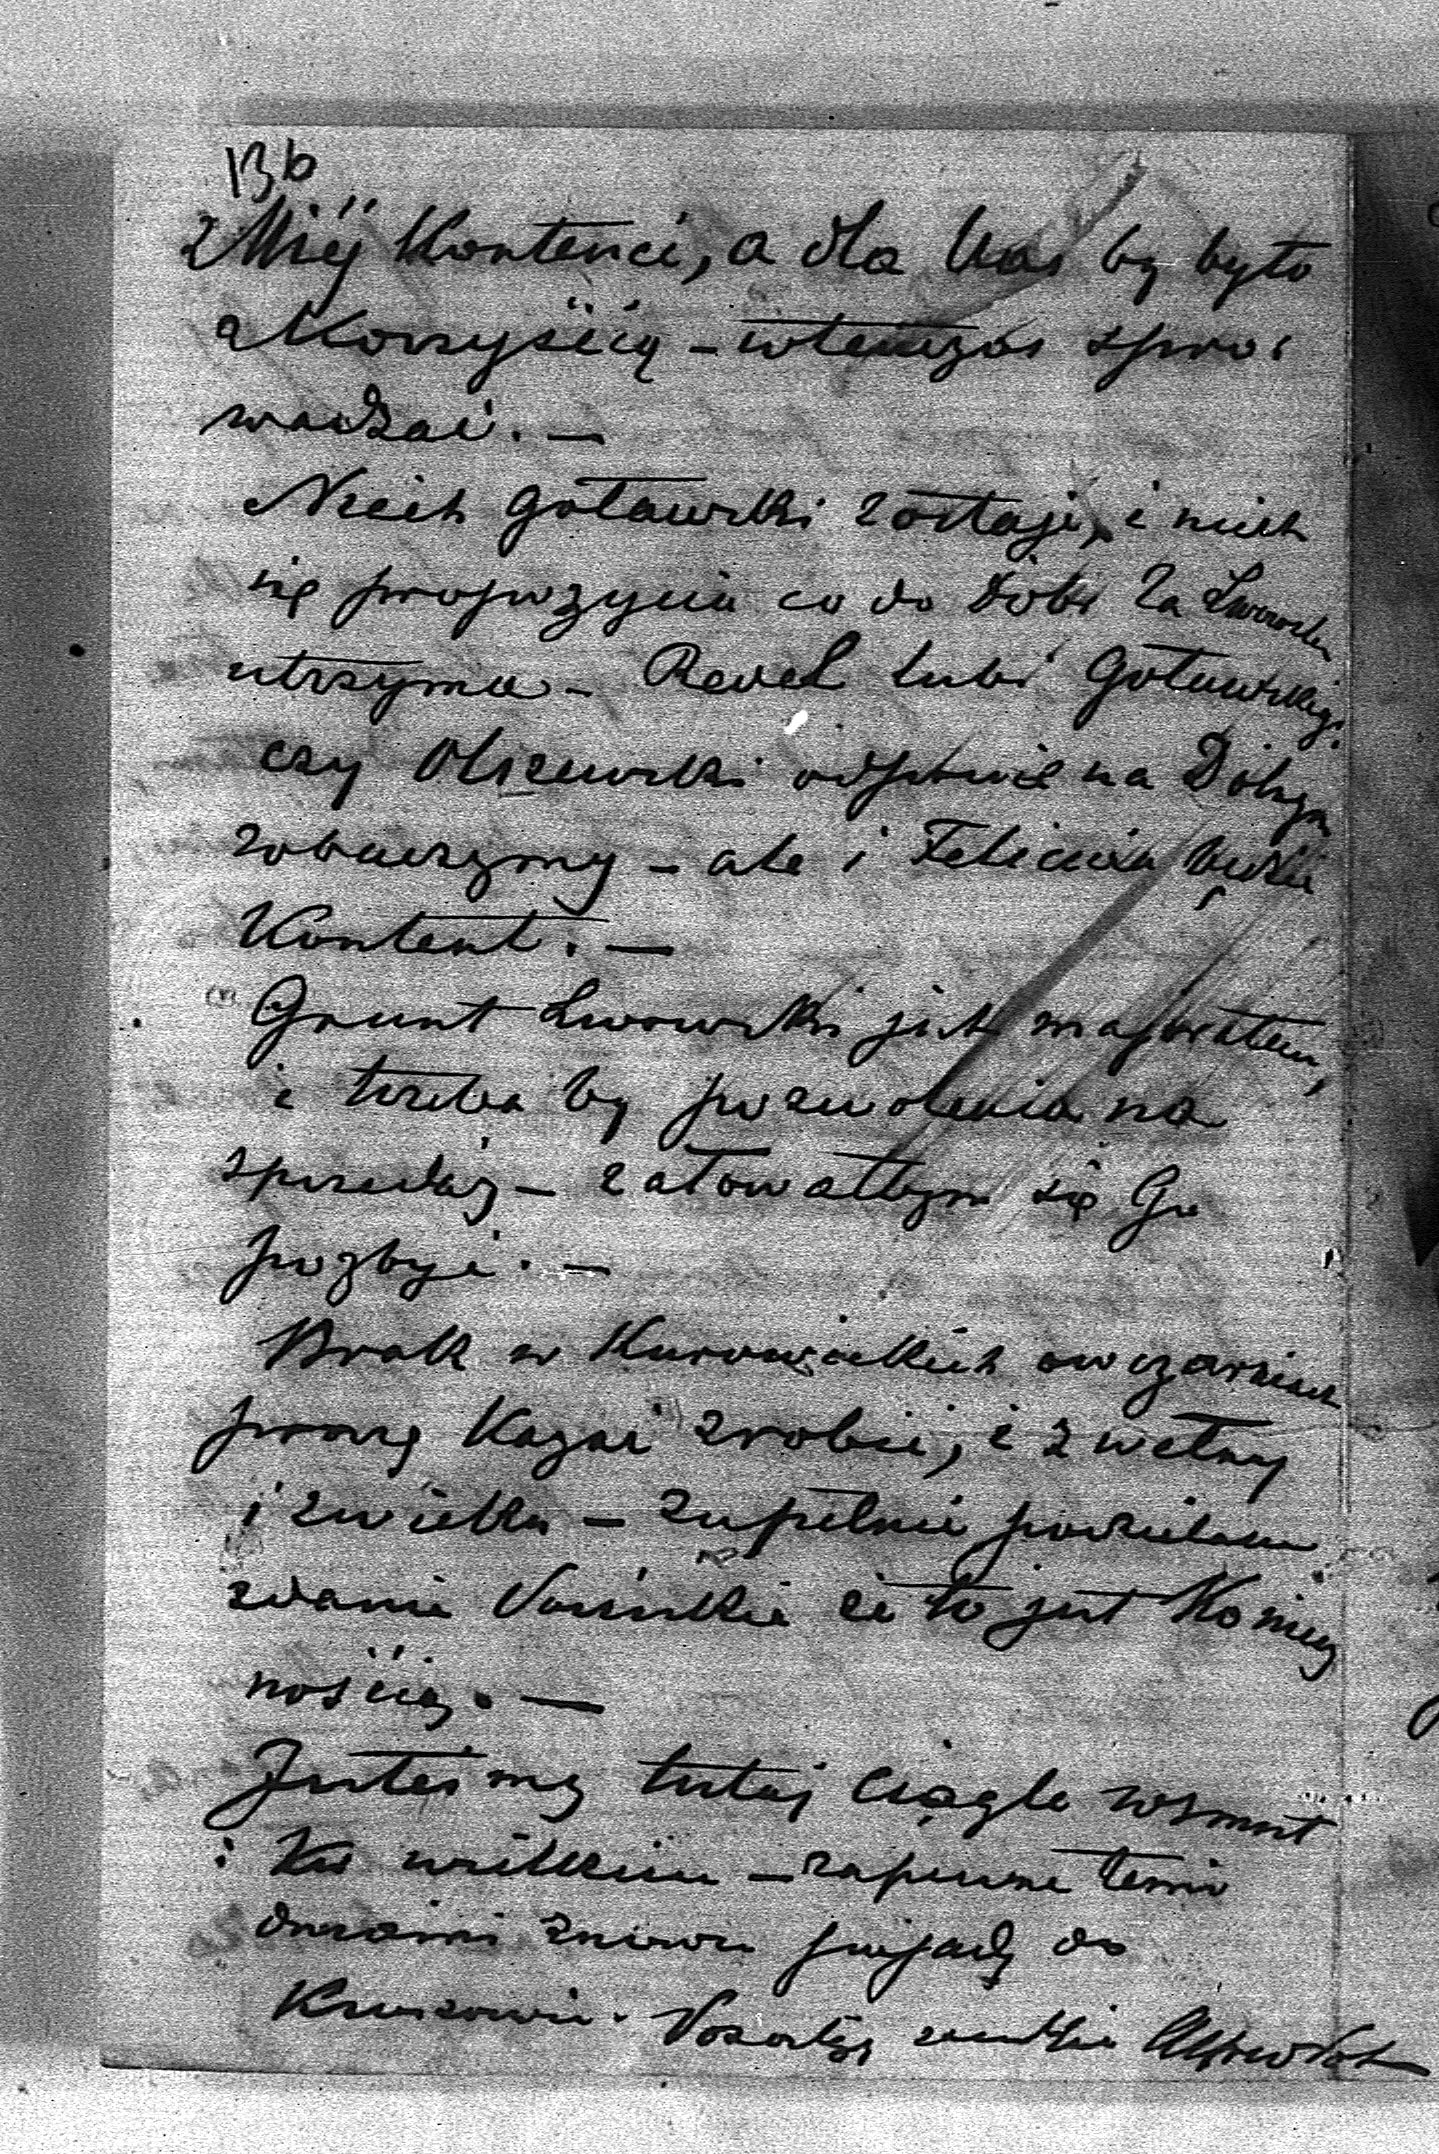 13b
Mniej Kontenci, a dla Nas by było
z Korzyścią – wtenczas spro-
wadzać. –
Niech Goławski zostaje, i niech
się propozycia co do Dóbr za Lwowskie
utrzyma – Revel lubi Goławskiego
czy Olszewski odpowie na
zobaczymy – ale i Felician będzie
Kontent. –
Grunt Lwowski jest majoratem,
i trzeba by pozwolenia na
sprzedaż – żałowałbym się Go
pozbyć. –
Brak w Kurowickich owczarniach
proszę Kazać zrobić, i z wełny
i z wieku – zupełnie podzielam
zdanie że to jest Koniecz
nością. –
Jesteśmy tutaj ciągle
i – zapewne temi
dniami znowu pojadę do
Krzeszowic. Pozostaję